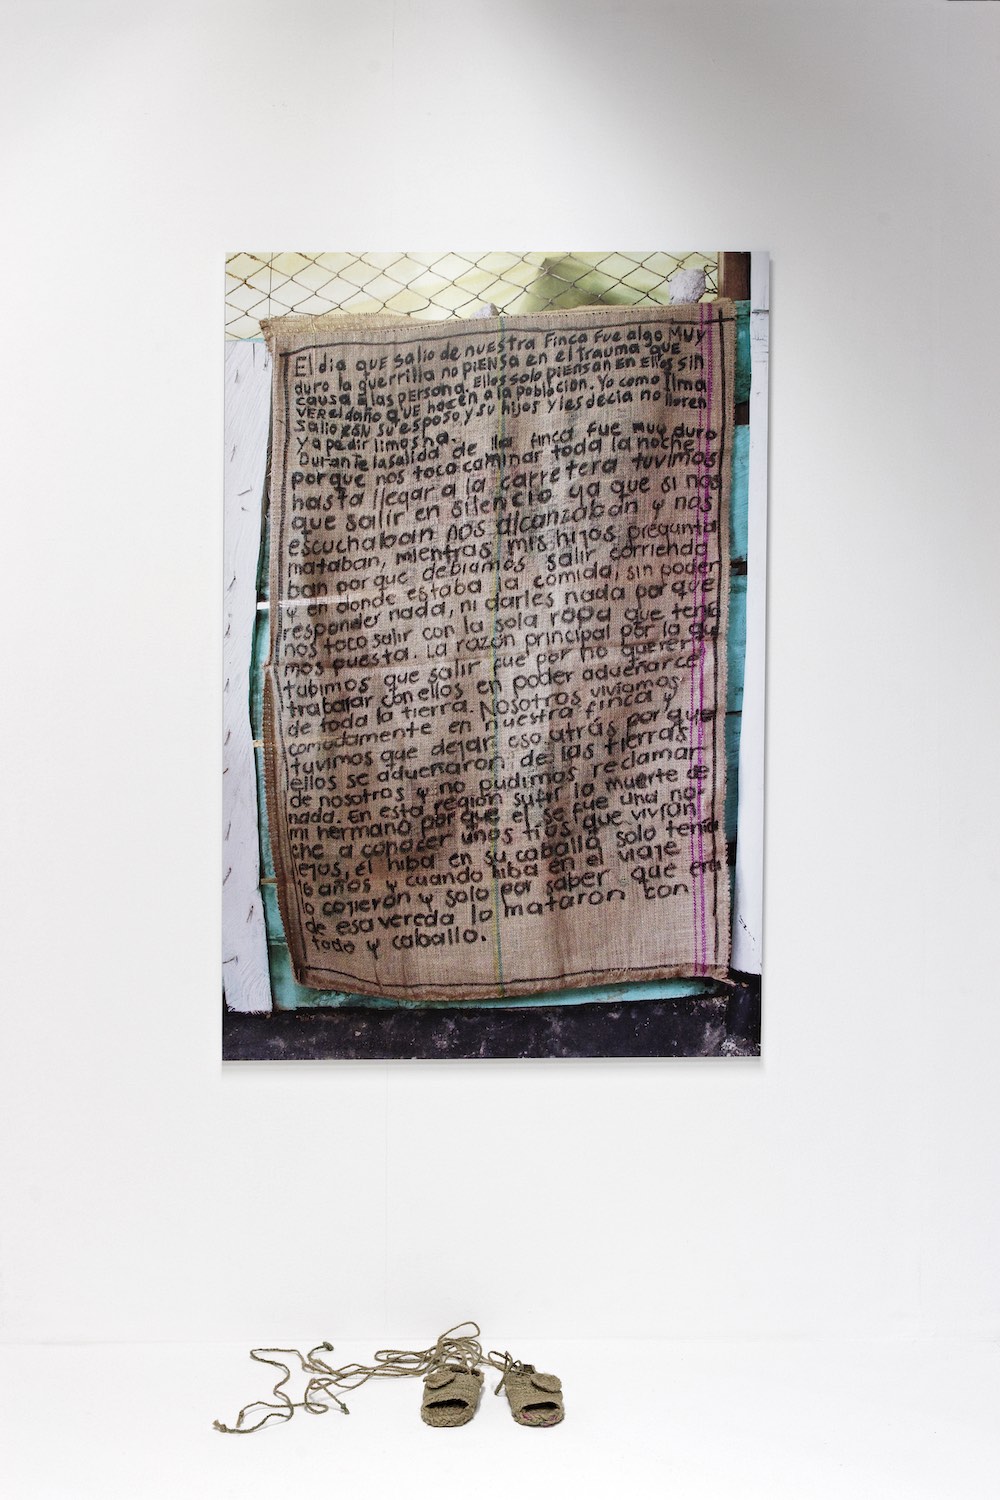 El dia que salio de nuestra Finca Fue algo MUY
duro la guerrilla no piensa en el trauma que
causa alas persona. Ellos solo piensan en Ellos sin
VER el daño que hacen a la población. Yo como
salio con su esposo y su hijos y les decia no lloren
y a pedir limosna.
Durante la salida de lla finca fue muy duro
porque nos toco caminar toda la noche
hasta llegar a la carretera tuvimos
que salir en silencio ya que si nos
escuchaban nos alcanzaban y nos
mataban, mientras mis hijos pregunta
ban porque debiamos salir corriendo
y en donde estaba la comida, sin poder
responder nada, ni darles nada por que
nos toco salir con la sola ropa que tení
mos puesta. La razón principal por la que
tubimos que salir fue por no querer
trabajar con ellos en poder adueñarce
de toda la tierra. Nosotros viviamos
comodamente en nuestra finca y
tuvimos que dejar eso atrás por que
ellos se adueñaron de las tierras
de nosotros y no pudimos reclamar
nada. En esta región sufri la muerte de
mi hermano por que el se fue una no-
che a conocer unos tios que vivian
lejos, él hiba en su caballo solo tenia
16 años y cuando hiba en el viaje
lo cojieron y solo por saber que era
de esa vereda lo mataron con
todo y caballo.